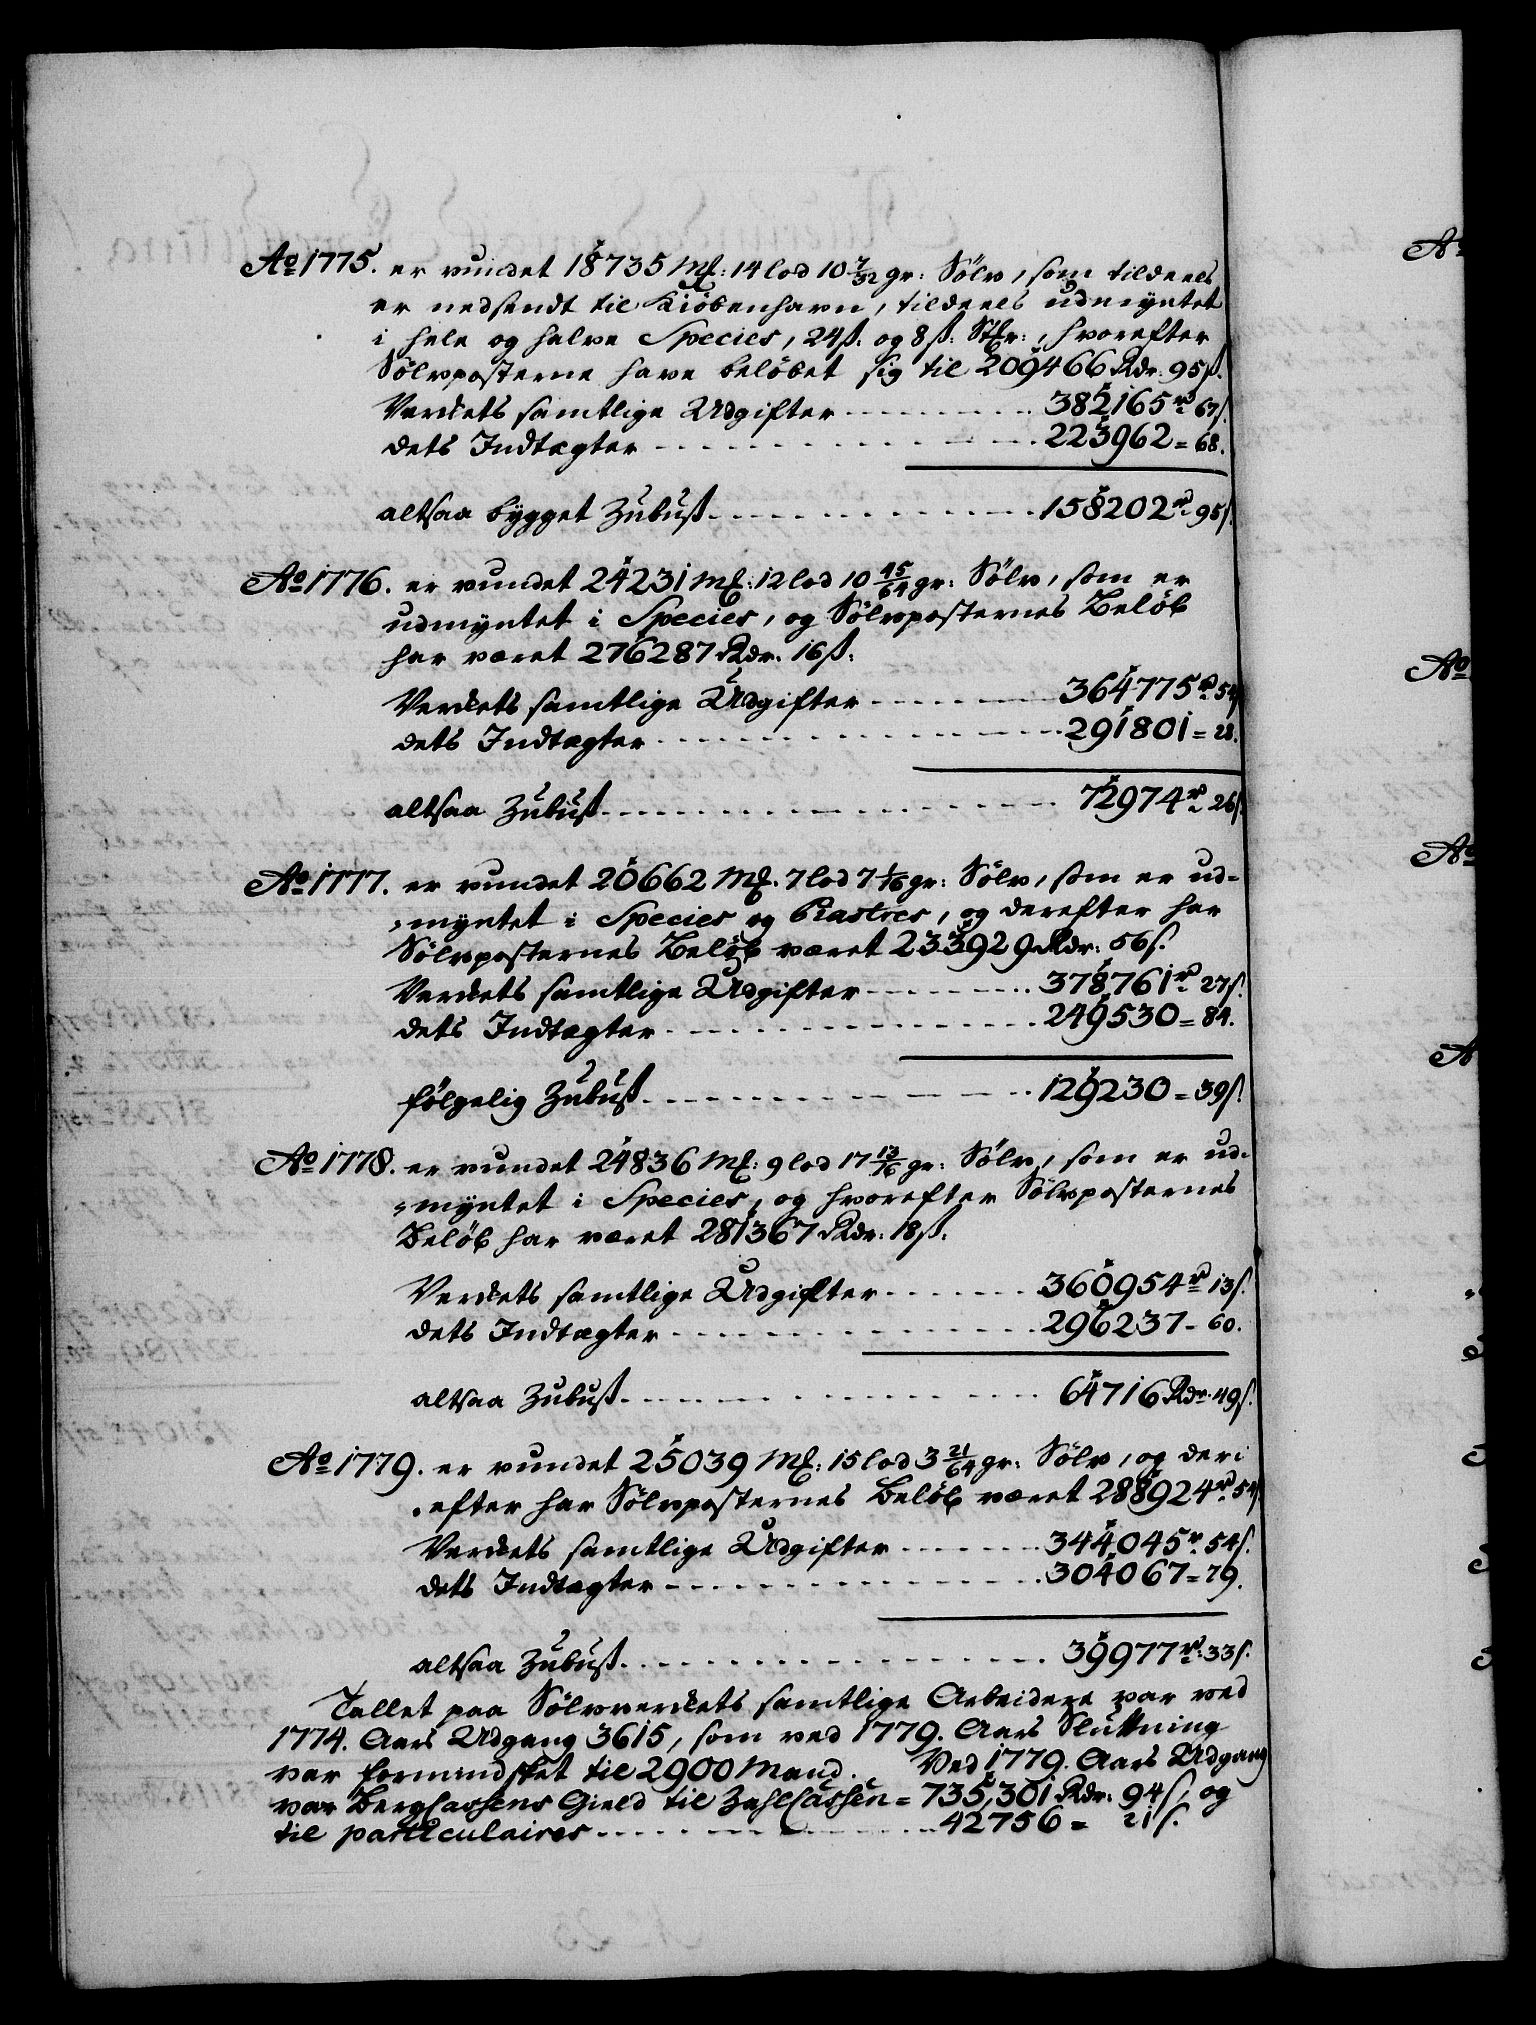 Ao 1775. er vundet 18735 Mk: 14 lod 10 7/32 gr: Sölv, som tildeels
er nedsendt til Kiöbenhavn, tildeels udmyntet
i hele og halve Species, 24 ß. og 8 ß: Stkr:, hvorefter
Sölvposterne have belöbet sig til 209466 Rdr. 95 ß.
Verkets samtlige Udgifter - - - 382165 rd 67 ß.
dets Indtægter - - - 223962 = 68.
altsaa bygget Zubuß - - - 158202 rd 95 ß.
Ao 1776. er vundet 24231 Mk: 12 lod 10 45/64 gr: Sölv, som er
udmyntet i Species, og Sölvposternes Belöb
har været 276287 Rdr. 16 ß:
Verkets samtlige Udgifter - - - 364775 rd 54
dets Indtægter - - - 291801 = 28.
altsaa Zubuß - - - 72974 rd 26 ß.
Ao 1777. er vundet 20662 Mk. 7 lod 7 1/16 gr: Sölv, som er ud=
=myntet i Species og Piastres, og derefter har
Sölvposternes Belöb været 233929 Rdr: 56 ß.
Verkets samtlige Udgifter - - - 378761 rd 27 ß.
dets Indtægter - - - 249530 = 84.
fölgelig Zubuß - - - 129230 = 39 ß.
Ao 1778. er vundet 24836 Mk: 9 lod 17 13/16 gr: Sölv, som er ud=
=myntet i Species, og hvorefter Sölvposternes
Belöb har været 281367 Rdr: 18 ß.
Verkets samtlige Udgifter - - - 360954 rd 13 ß.
dets Indtægter - - - 296237 - 60.
altsaa Zubuß - - - 64716 Rdr. 49 ß.
Ao 1779. er vundet 25039 Mk: 15 lod 3 21/64 gr: Sölv, og der=
=efter har Sölvposternes Belöb været 288924 rd 54
Verkets samtlige Udgifter - - - 344045 rd 54 ß.
dets Indtægter - - - 304067 = 79.
altsaa Zubuß - - - 39977 rd: 33 ß.
Tallet paa Sölvverkets samtlige Arbeidere var ved
1774. Aars Udgang 3615, som ved 1779. Aars Sluttning
var formindsket til 2900 Mand. Ved 1779. Aars Udgang
var BergCassens Gield til ZahlCassen = 735,301 Rdr. 94 ß, og
til particulaires - - - 42756 = 21 ß.